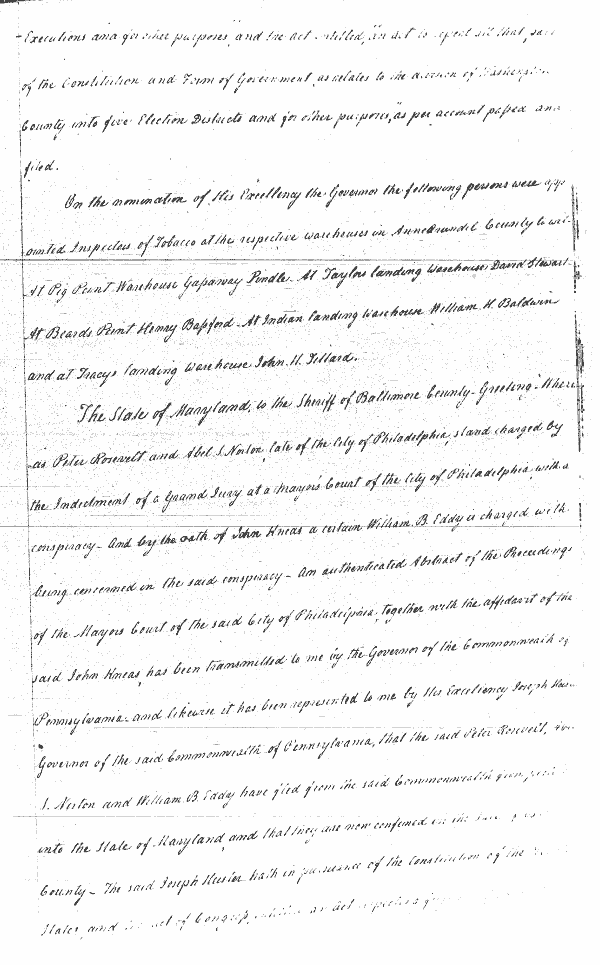 Executions and for other purposes, and the act entitled, "an act to repeal all that part
of the Constitution and Form of Government, as relates to the division of Washington
County into five Election Districts and for other purposes," as per account passed and
filed.
On the nomination of His Excellency the Governor the following persons were app
ointed Inspectors of Tobacco at the respective warehouses in AnneArundel County to wit-
At Pig Point Warehouse Gassaway Pindle. At Taylors landing warehouse David Stewart
At Beards Point Henry Bassford. At Indian landing warehouse William H. Baldwin
and at Tracys landing warehouse John H. Tillard.
The State of Maryland, to the Sheriff of Baltimore County - Greeting - Where
as Peter Rosevelt and Abel S. Norton, late of the City of Philadelphia, stand charged by
the Indictment of a Grand Jury at a Mayor's Court of the City of Philadelphia, with a
conspiracy - And by the oath of John Kneas a certain William B. Eddy is charged with
being concerned in the said conspiracy - An authenticated Abstract of the Proceedings
of the Mayors Court of the said City of Philadelphia, together with the affidavit of the
said John Kneas, has been transmitted to me by the Governor of the Commonwealth of
Pennsylvania - and likewise it has been represented to me by His Excellency Joseph
Governor of the said Commonwealth of Pennsylvania, that the said Peter Rosevelt,
S. Norton and William B. Eddy have fled from the said Commonwealth from
into the State of Maryland, and that they are now confined in the
County - The said Joseph Hiester hath in pursuance of the Constitution of the
States, and act of Congress, entitled an Act respecting